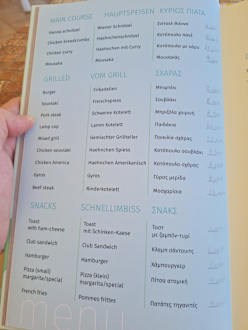 MAIN COURSE HAUPTSPEISEN ΚΥΡΙΩΣ ΠΙΑΤΑ
Vienna schnitzel Wiener Schnitzel
Chicken breadcrumbs Haehnchenschnitzel Κοτόπουλο πανέ
Chicken curry Haehnchen mit Curry Κοτόπουλο με κάρυ
Mousaka Mousaka Μουσακάς
GRILLED VOM GRILL ΣΧΑΡΑΣ
Burger Frikadellen Μπιφτέκι
Souvlaki Fleischspiess Σουβλάκι
Pork steak Schweine Kotelett Μπριζόλα χοιρινή
Lamp cop Lamm Kotelett Παϊδάκια
Mixed grill Gemischter Grillteller Ποικιλία σχάρας
Chicken souvlaki Haehnchen Spiess Κοτόπουλο σουβλάκι
Chicken America Haehnchen Amerikanisch Κοτόπουλο σχάρας
Gyros Gyros Γύρος μερίδα
Beef steak Rinderkotelett Μοσχαρίσια
SNACKS SCHNELLIMBISS ΣΝΑΚΣ
Toast Toast Τοστ
with ham-cheese mit Schinken-Kaese με ζαμπόν-τυρί
Club sandwich Club Sandwich Κλαμπ σάντουιτς
Hamburger Hamburger Χάμπουργκερ
Pizza (small) Pizza (klein) Πίτσα ατομική
margarita/special margarita/special
French fries Pommes frittes Πατάτες τηγανιτές
menu